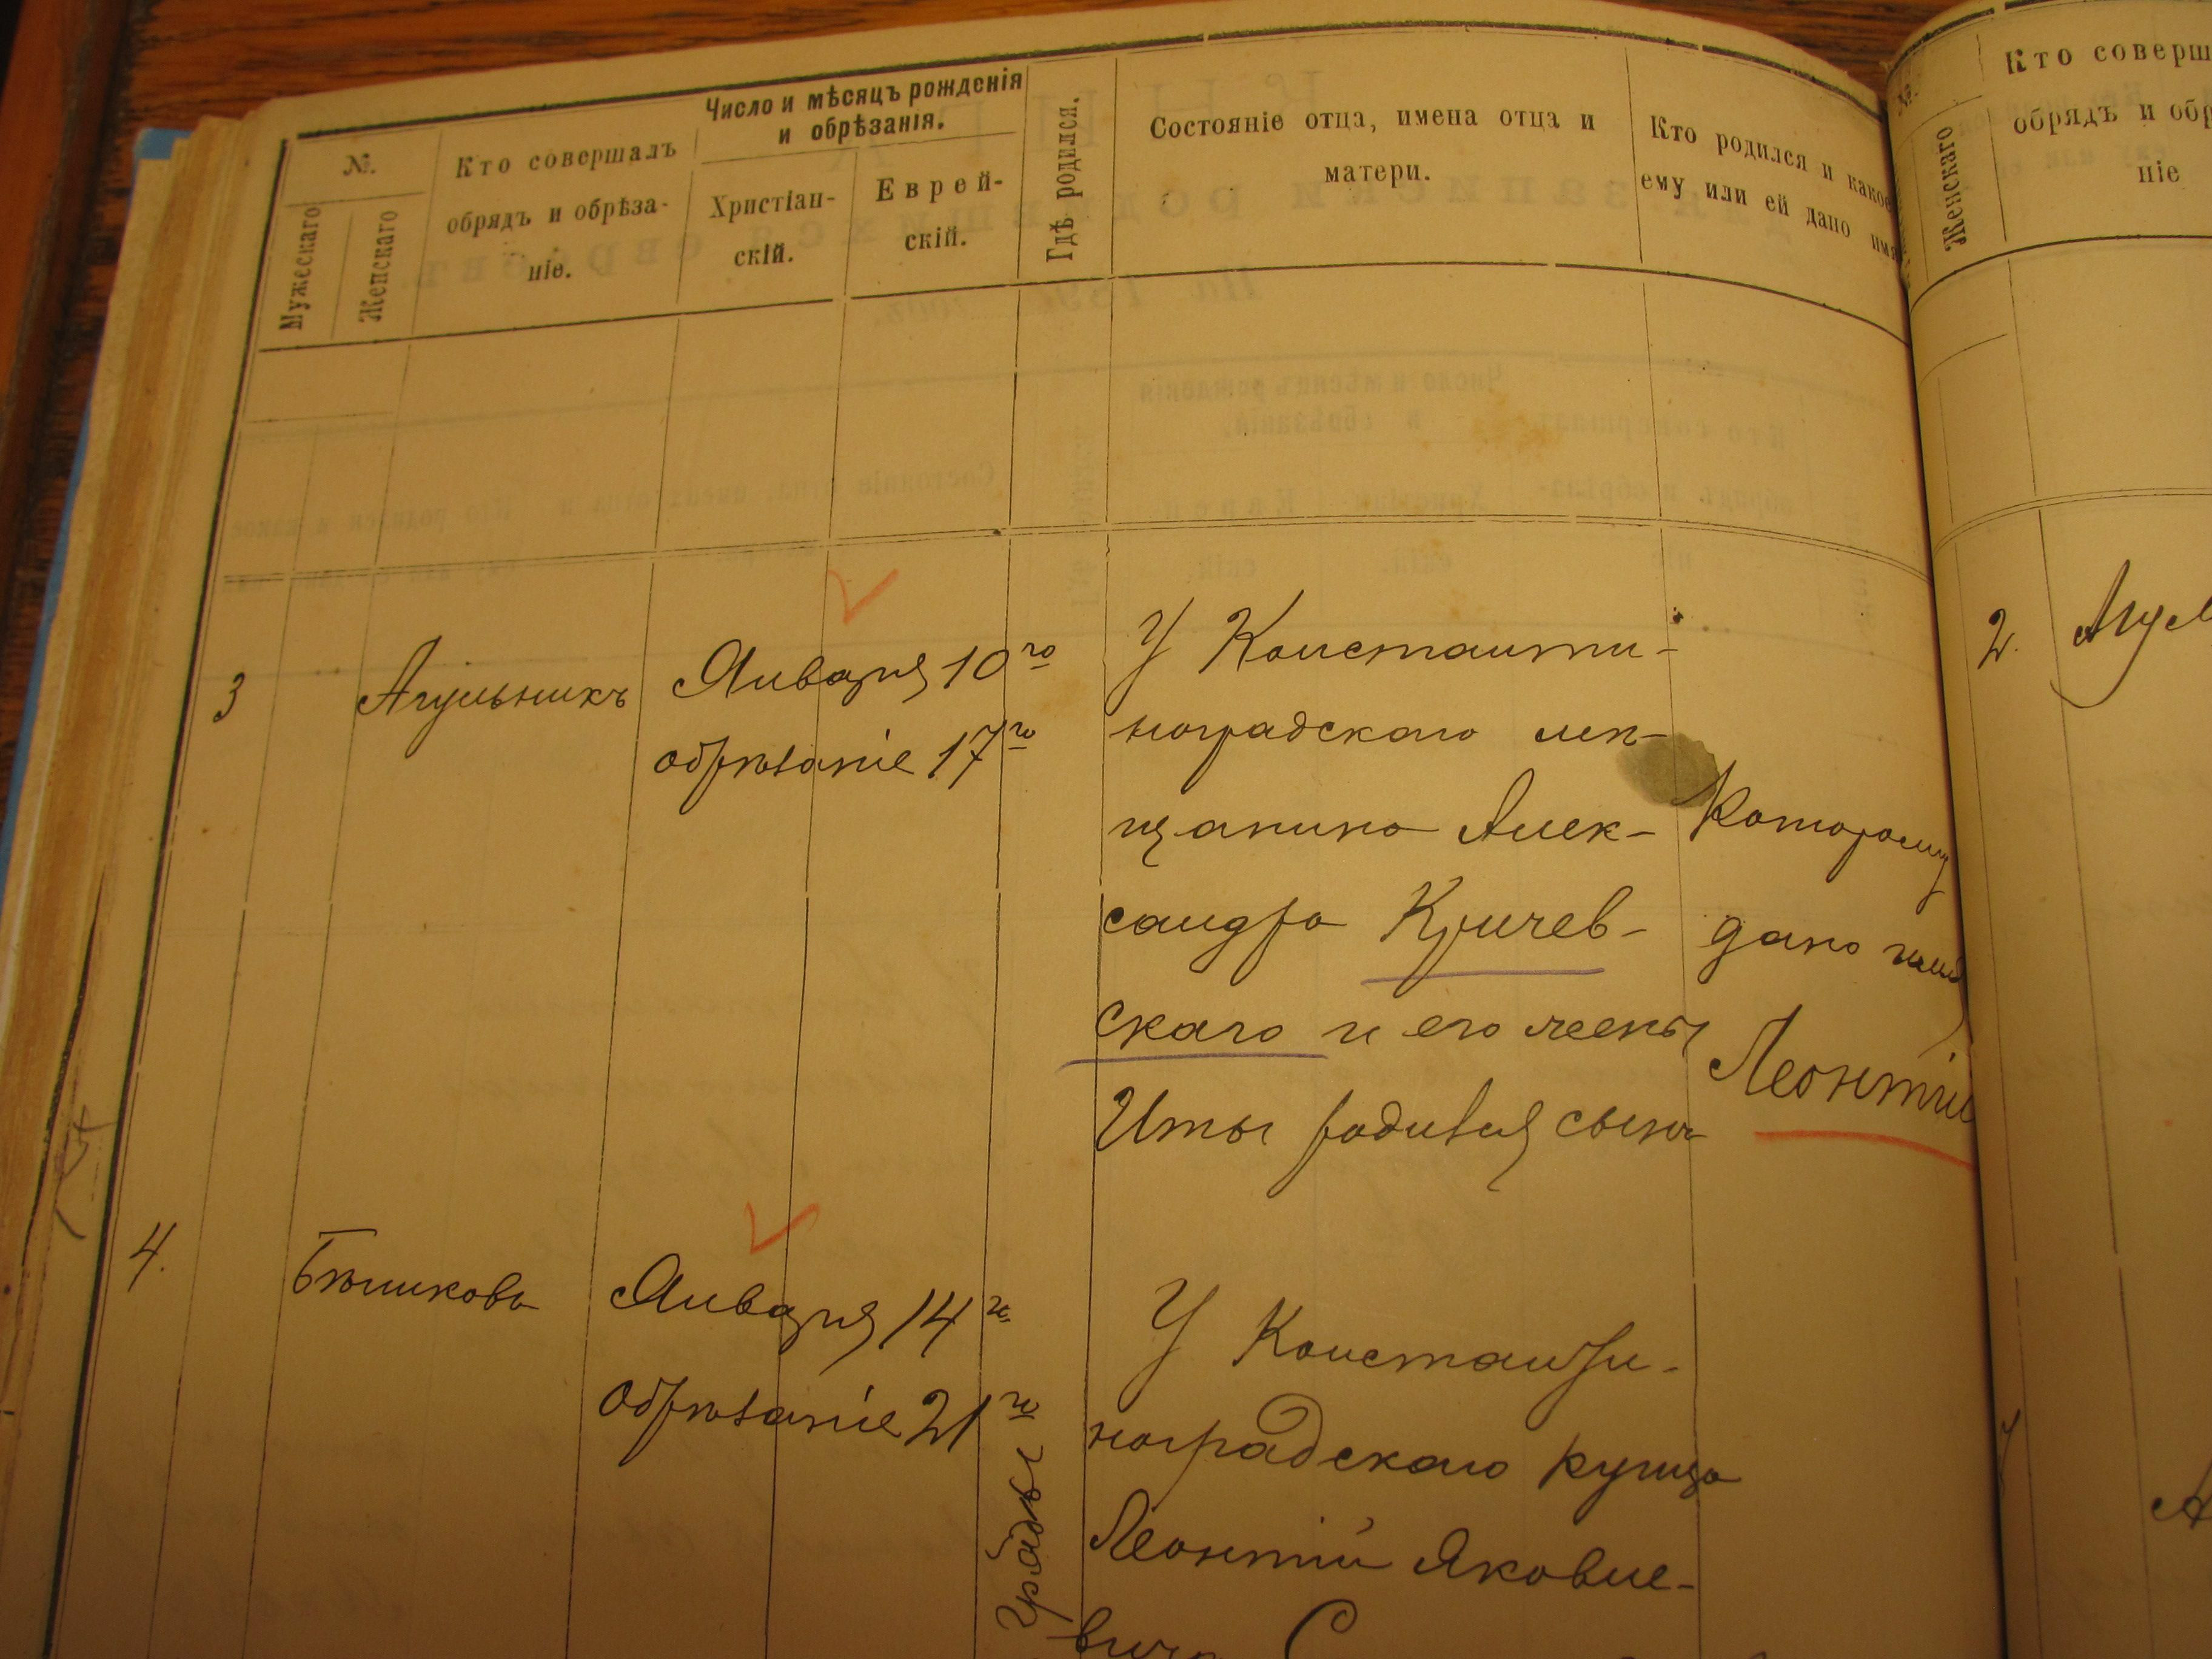 №.
Мужескаго
Женскаго
Кто совершалъ
обрядъ и обрѣза-
ніе.
Число и мѣсяцъ рожденія
и обрѣзанія.
Христіан-
скій.
Еврей-
скій.
Гдѣ родился.
Состояніе отца, имена отца и
матери.
Кто родился и какое
ему или ей дано имя
3
Агульникъ
Января 10го
обрѣзаніе 17го
У Константи-
ноградскаго мѣ-
щанина Алек-
сандра Кричев-
скаго и его жены
Иты родился сынъ
Которому
дано имя
Леонтій
4.
Бѣликовъ
Января 14го
Обрѣзаніе 21го
У Константи-
ноградскаго купца
Леонтій Яковле-
вича
Женскаго
Кто соверш
обрядъ и обр
ніе
2.
Агул